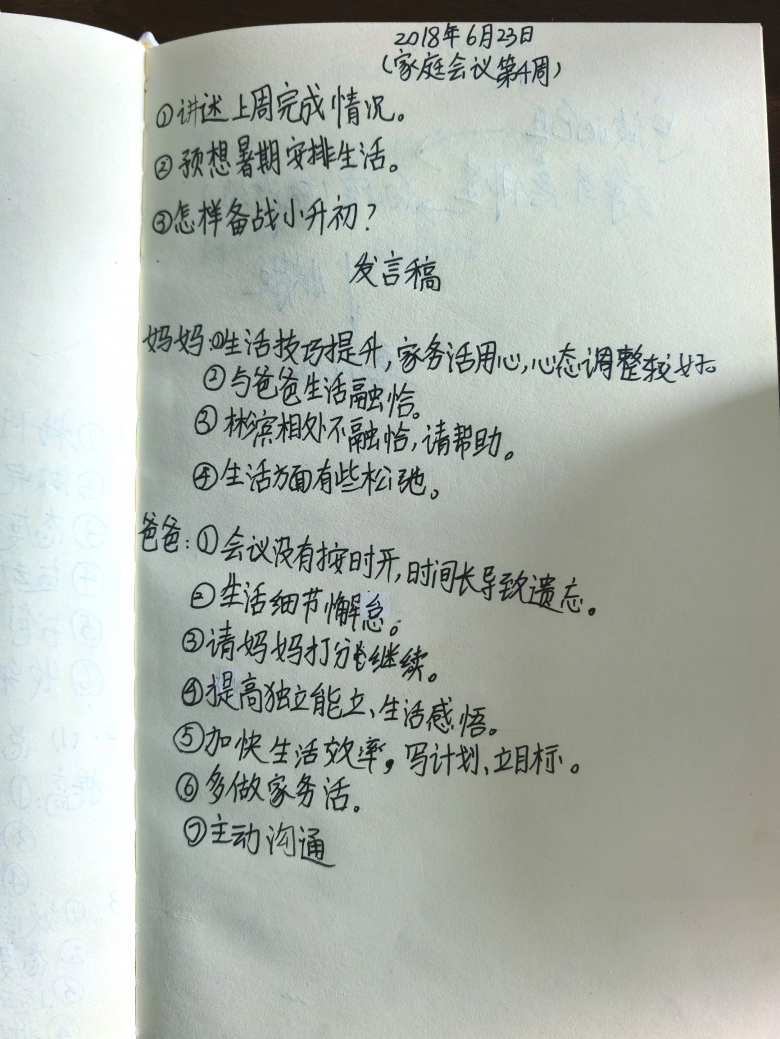 2018年6月23日
(家庭会议第4周)
①讲述上周完成情况。
②预想暑期安排生活。
③怎样备战小升初?
发言稿
妈妈:①生活技巧提升,家务活用心,心态调整较好。
②与爸爸生活融恰。
③彬滨相处不融恰,请帮助。
④生活方面有些松弛。
爸爸:①会议没有按时开,时间长导致遗忘。
②生活细节懈怠。
③请妈妈打分继续。
④提高独立能立、生活感悟。
⑤加快生活效率,写计划、立目标。
⑥多做家务活。
⑦主动沟通